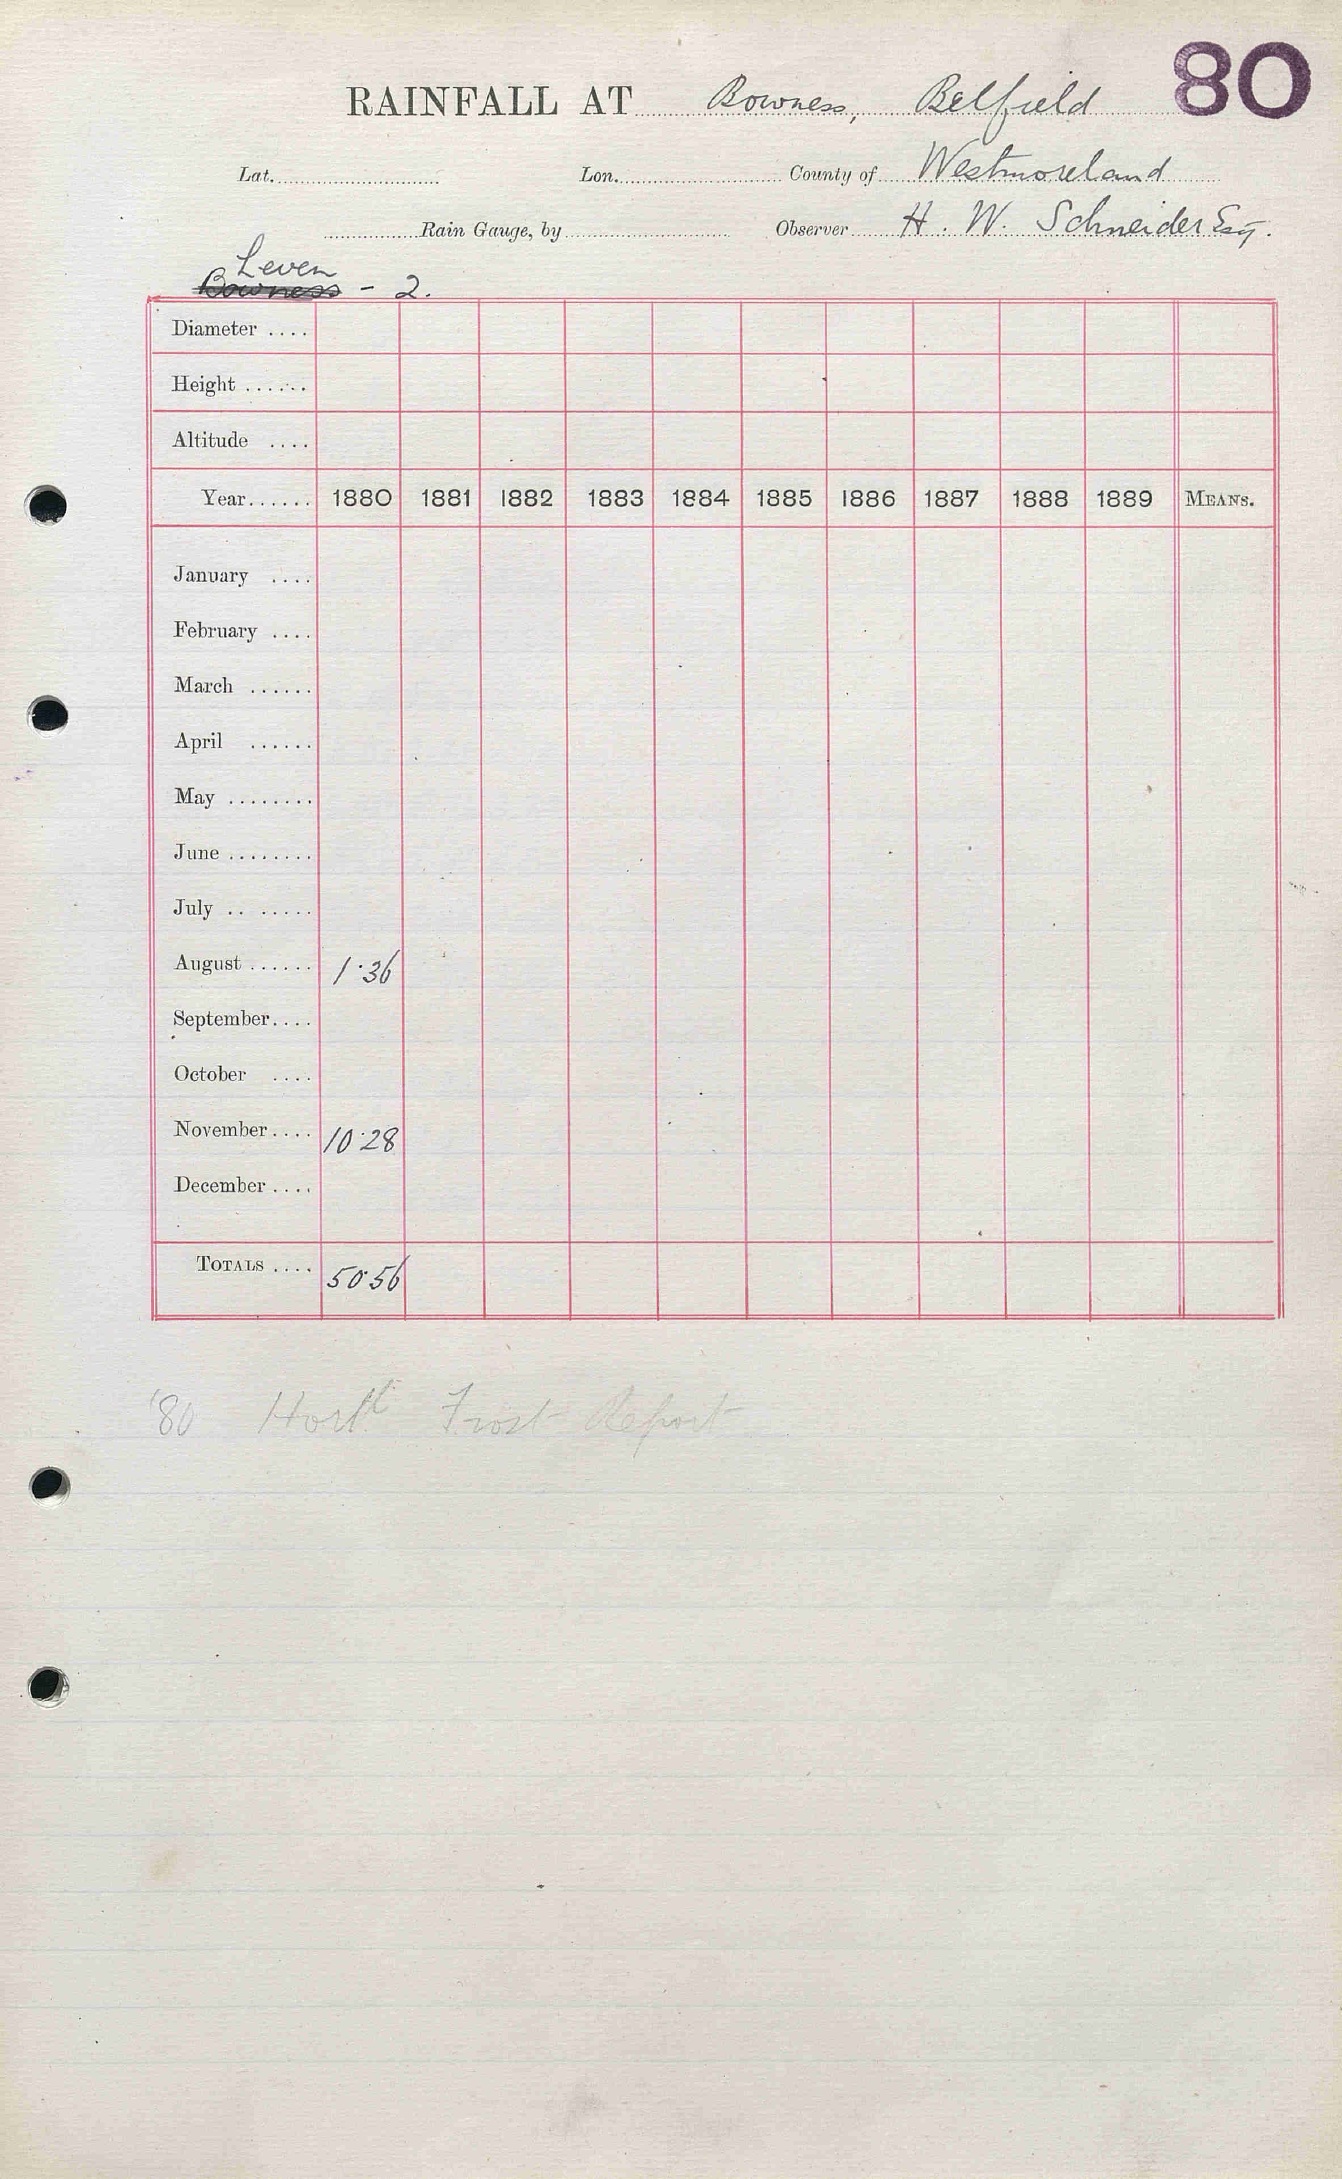 80
RAINFALL AT Bowness, Belfield
Lat. Lon. County of Westmoreland
Rain Gauge, by Observer H. W. Schneider Esq.
Leven
Bowness - 2.
Diameter ....
Height ......
Altitude ....
Year...... 1880 1881 1882 1883 1884 1885 1886 1887 1888 1889 MEANS.
January ....
February ....
March ......
April ......
May ........
June ........
July .. ......
August ...... 1.36
September....
October ....
November.... 10.28
December ....
TOTALS .... 50.56
'80 Hortl Frost Report